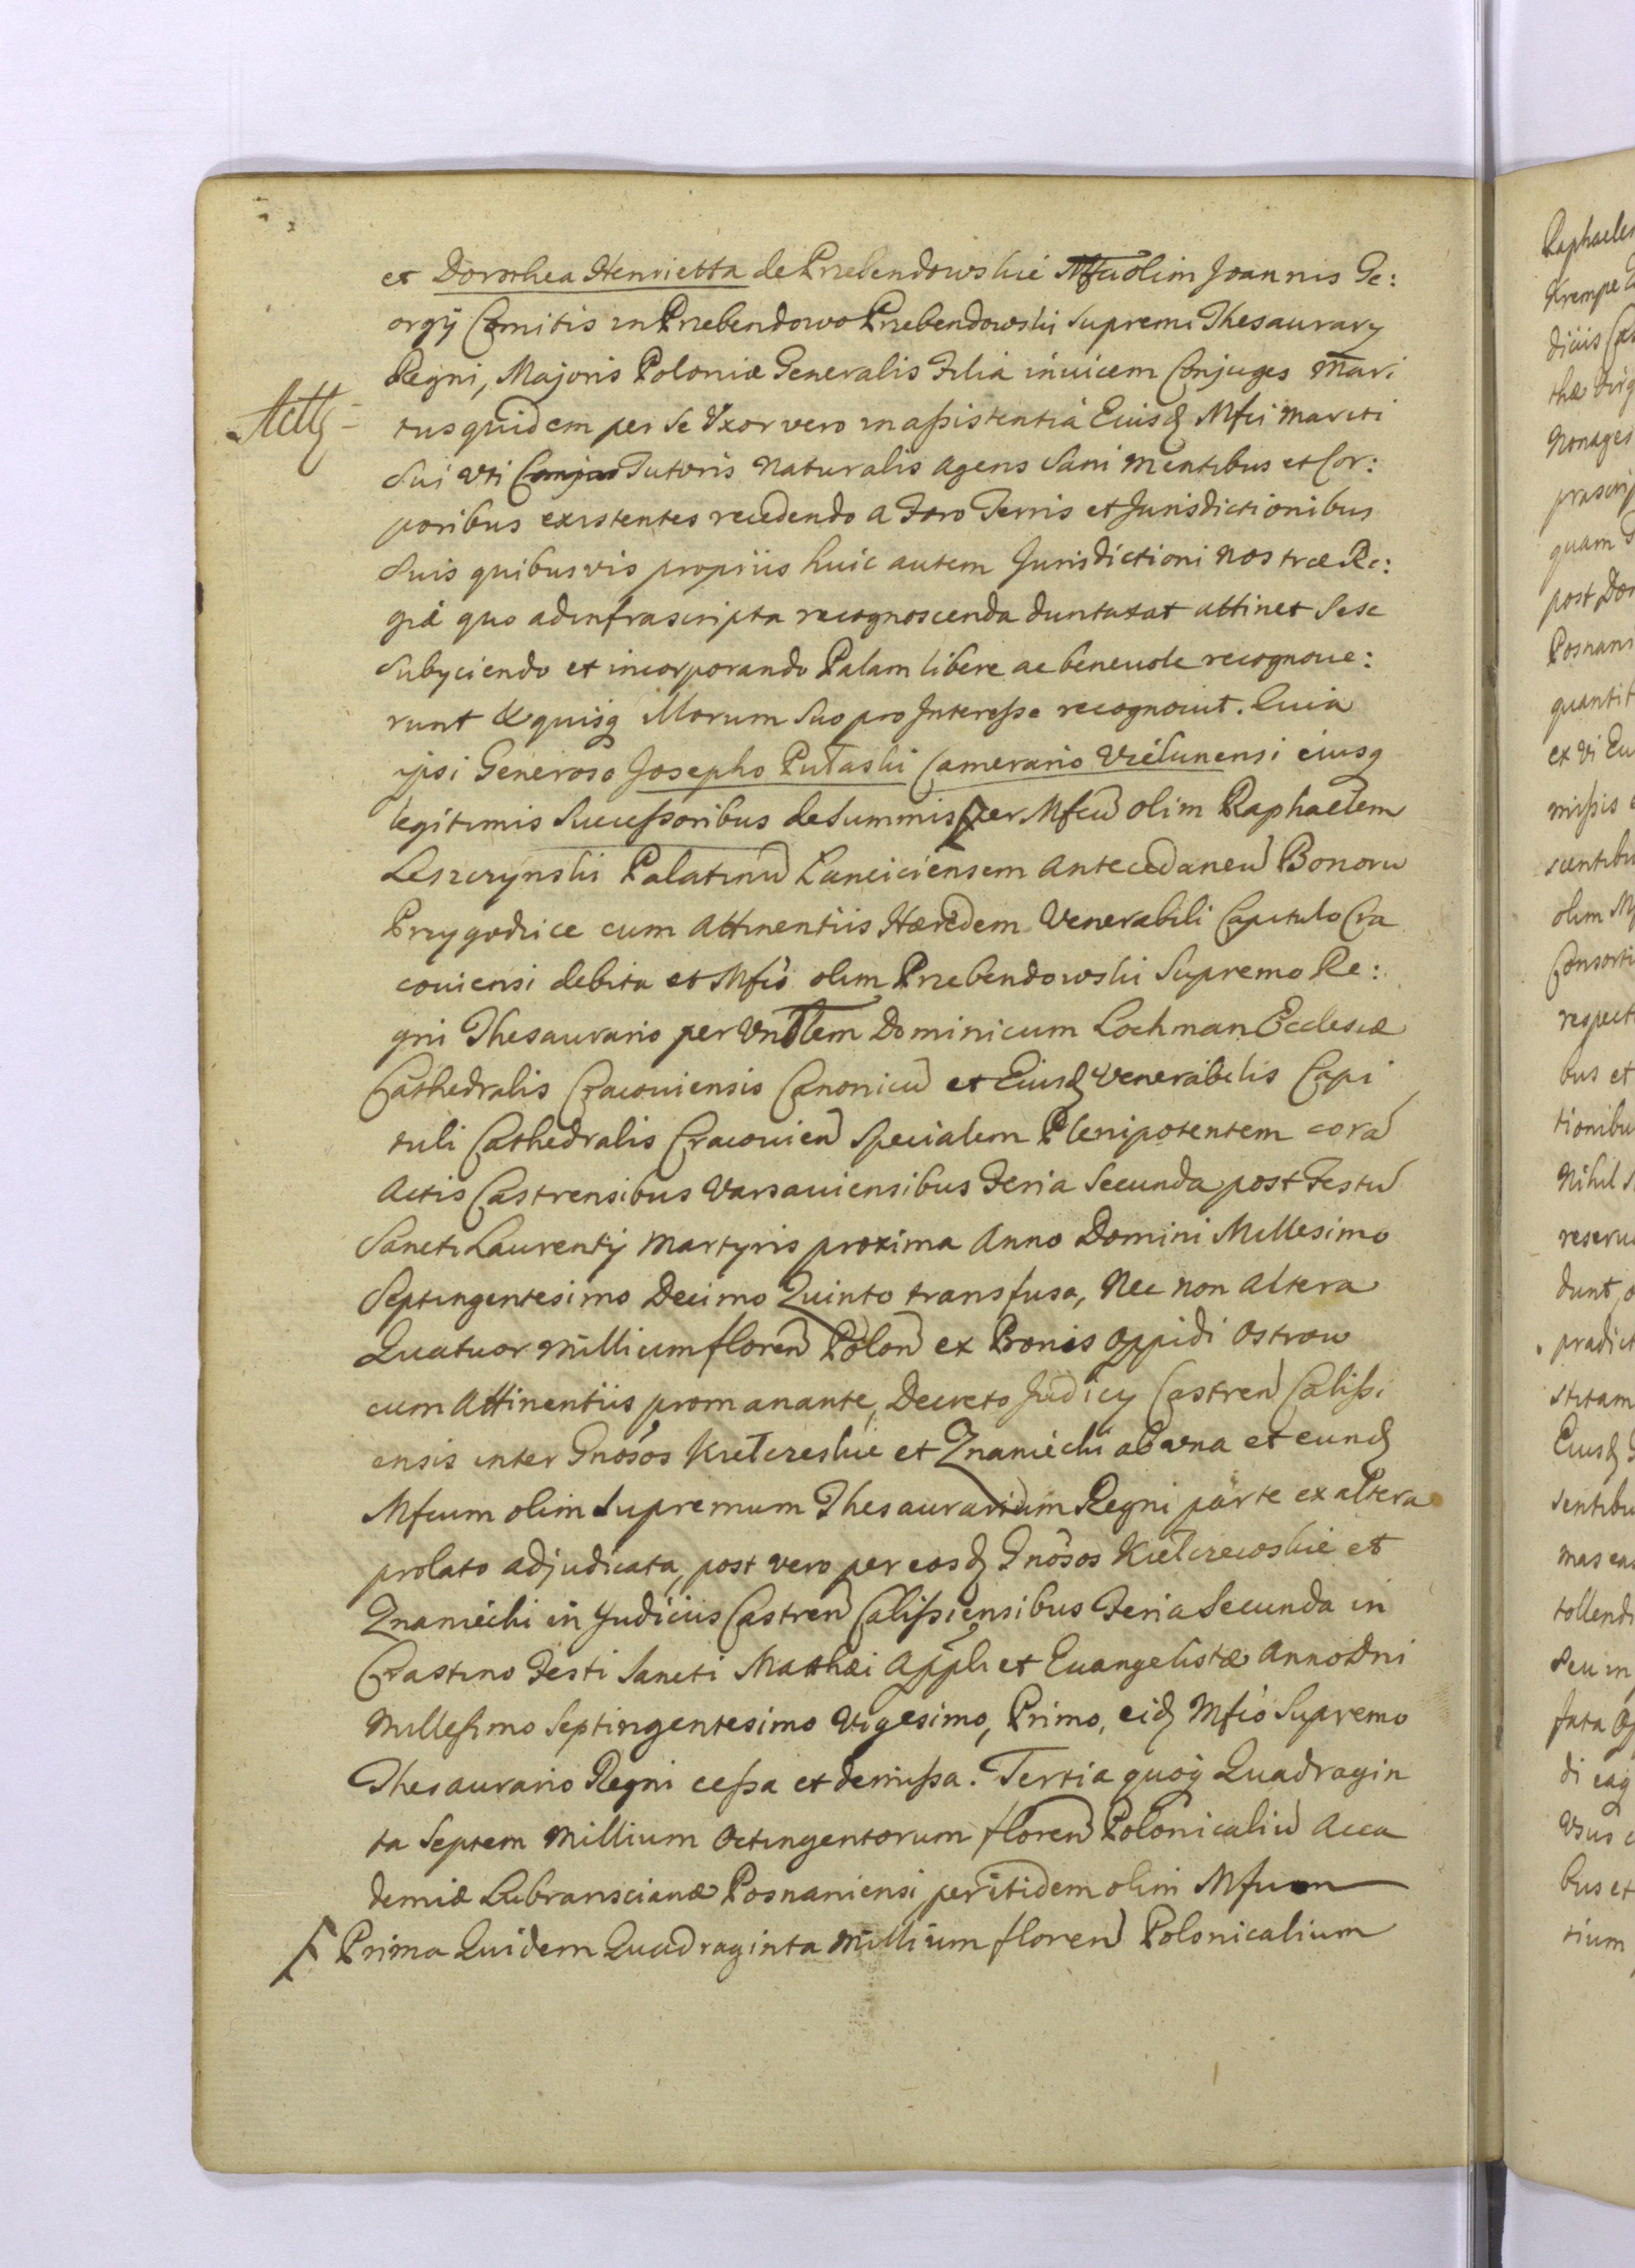 et Dorothea Henrietta de Przebendowskie Mfci olim Joannis Ge:
orgÿ Comitis in Przebendowo Przebendowski Supremi Thesaurary
Regni, Majoris Poloniæ Generalis Filia inuicem Conjuges Mari
tus quidem per Se Vxor vero in aßistentia Eiusd Mfci Mariti
Sui vti Tutoris Naturalis Agens Sani Mentibus et Cor:
poribus existentes recedendo a Foro Terris et Jurisdictionibus
Suis quibusvis propriis huic autem Jurisdictioni nostræ Re:
giæ quo ad infrascripta recognoscenda duntaxat attinet Sese
Subyciendo et incorporando Palam libere ac beneuole recognoue:
runt & quisq Illorum Suo pro Intereße recognouit. Quia
ipsi Generoso Josepho Pułaski Camerario Vielunensi eiusq
legitimis Succeßoribus de Summis per Mfcu olim Raphaelem
Leszczynski Palatinu Lanciciensem Antecedaneu Bonoru
Przygodzice cum Attinentiis Hæredem Venerabili Capitulo Cra
couiensi debita et Mfco olim Przebendowski Supremo Re:
gni Thesaurario per Vnblem Dominicum Lochman Ecclesiæ
Cathedralis Cracouiensis Canonicu et Eiusd Venerabilis Capi
tuli Cathedralis Cracouien Specialem Plenipotentem cora
Actis Castrensibus Varsauiensibus Feria Secunda post Festu
Sancti Laurentÿ Martyris proxima Anno Domini Millesimo
Septingentesimo Decimo Quinto transfusa, Nec non altera
Quatuor Millium floren Polon ex Bonis Oppidi Ostrow
cum Attinentiis promanante, Decreto Judicy Castren Calißi
ensis inter Gnosos Kiełczeskie et Znaniechi ab vna et eund
Mfcum olim Supremum Thesaurarium Regni parte ex altera
prolato adjudicata, post vero per eosd Gnosos Kiełczewskie et
Znaniechi in Judiciis Castren Calißiensibus Feria Secunda in
Crastino Festi Sancti Matthæi Appli et Euangelistæ Anno Dni
Milleßimo Septingentesimo Vigesimo, Primo, eid Mfco Supremo
Thesaurario Regni ceßa et demißa. Tertia quoq Quadragin
ta Septem Millium Octingentorum floren Polonicaliu Acca
demiæ Lubranscianæ Posnaniensi per itidem olim Mfcum
Prima Quidem Quadraginta Millium floren Polonicalium